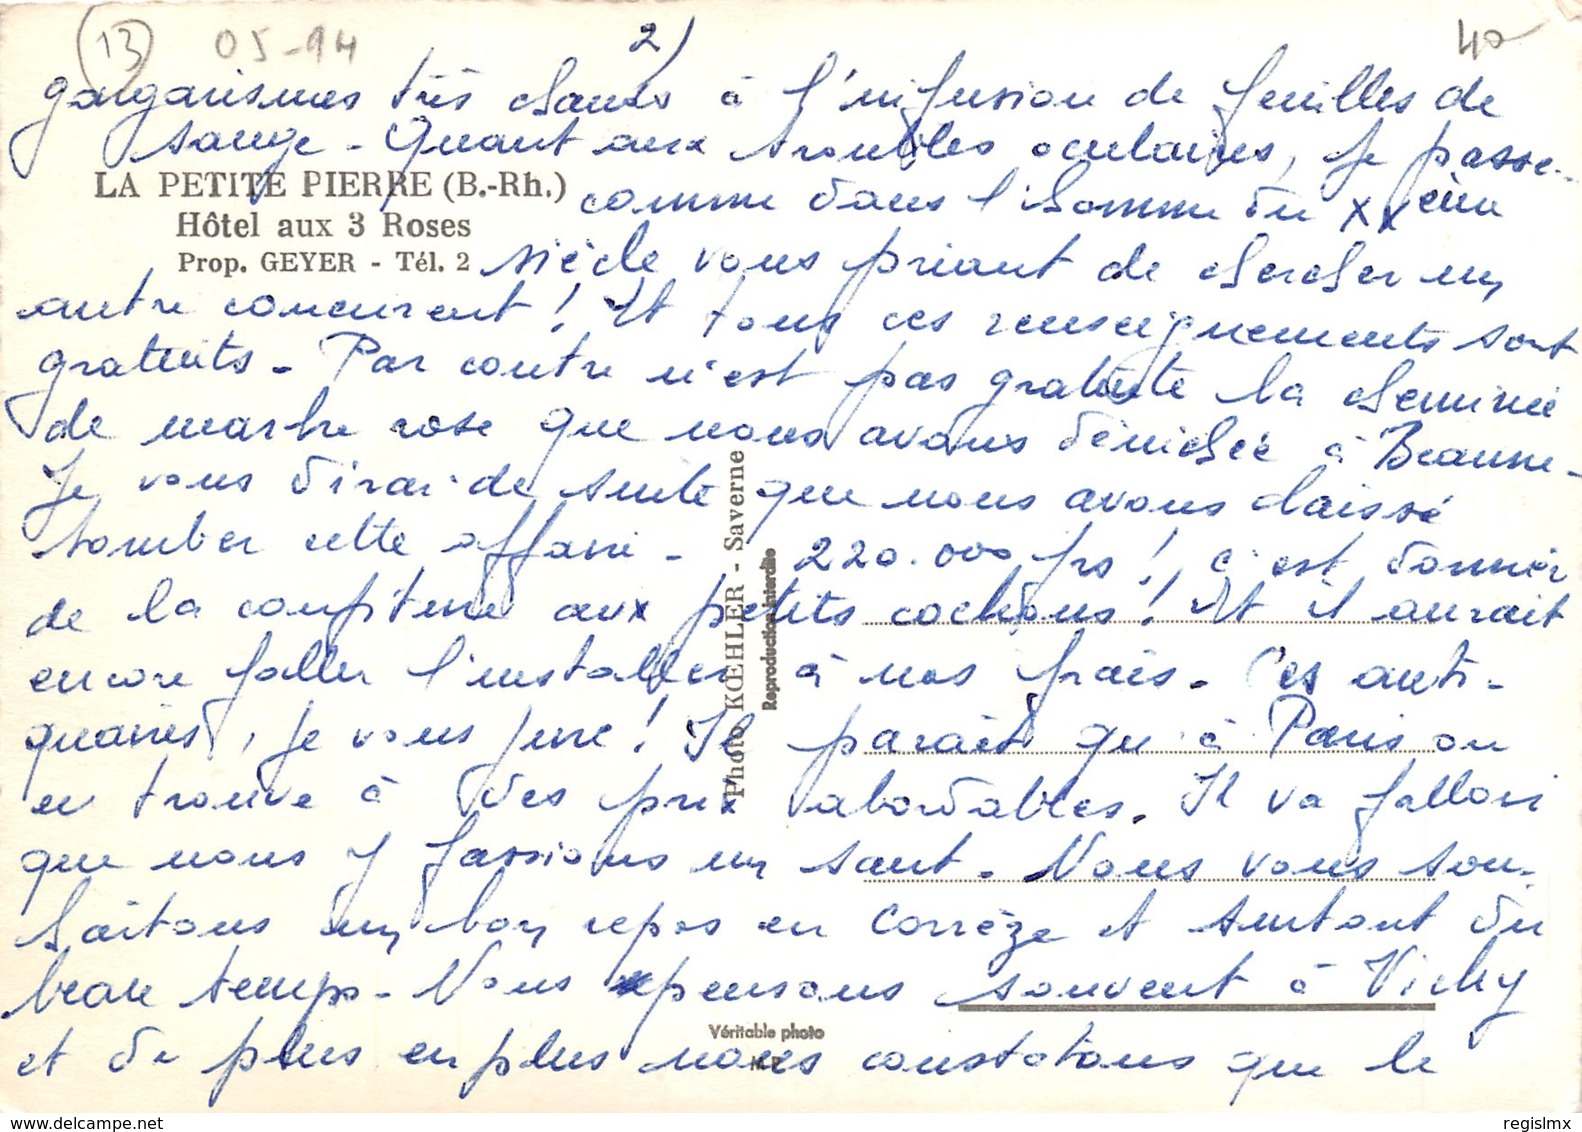 13
05-94
2)
40
gargarismes très chauds à l'infusion de feuilles de
sauge - Quant aux troubles oculaires, je passe
LA PETITE PIERRE (B.-Rh.)
comme dans l'homme du XXème
Hôtel aux 3 Roses
Prop. GEYER - Tél. 2
siècle vous priant de chercher un
autre concurrent ! Et tous ces renseignements sont
gratuits - Par contre n'est pas gratuite la cheminée
de marbre rose que nous avons dénichée à Beaune -
Je vous dirai de suite que nous avons laissé
tomber cette affaire - 220.000 frs ! c'est donner
de la confiture aux petits cochons ! Et il aurait
encore fallu l'installer à nos frais - Ces anti-
quaires, je vous jure ! Il paraît qu'à Paris on
en trouve à des prix abordables. Il va falloir
que nous y fassions un saut - Nous vous sou-
haitons un bon repos en Corrèze et surtout du
beau temps - Nous pensons souvent à Vichy
et de plus en plus nous constatons que le
Photo KŒHLER - Saverne
Reproduction interdite
Véritable photo
regislmx